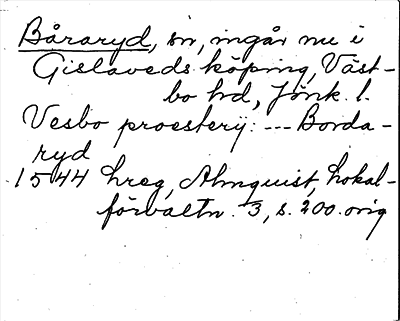 Båraryd, sn, ingår nu i
Gislaveds köping, Väst-
bo hd, Jönk. l.
Vesbo proesterij: --- Borda-
ryd
1544 hreg, Almquist, Lokal-
förvaltn. 3, s. 200. orig